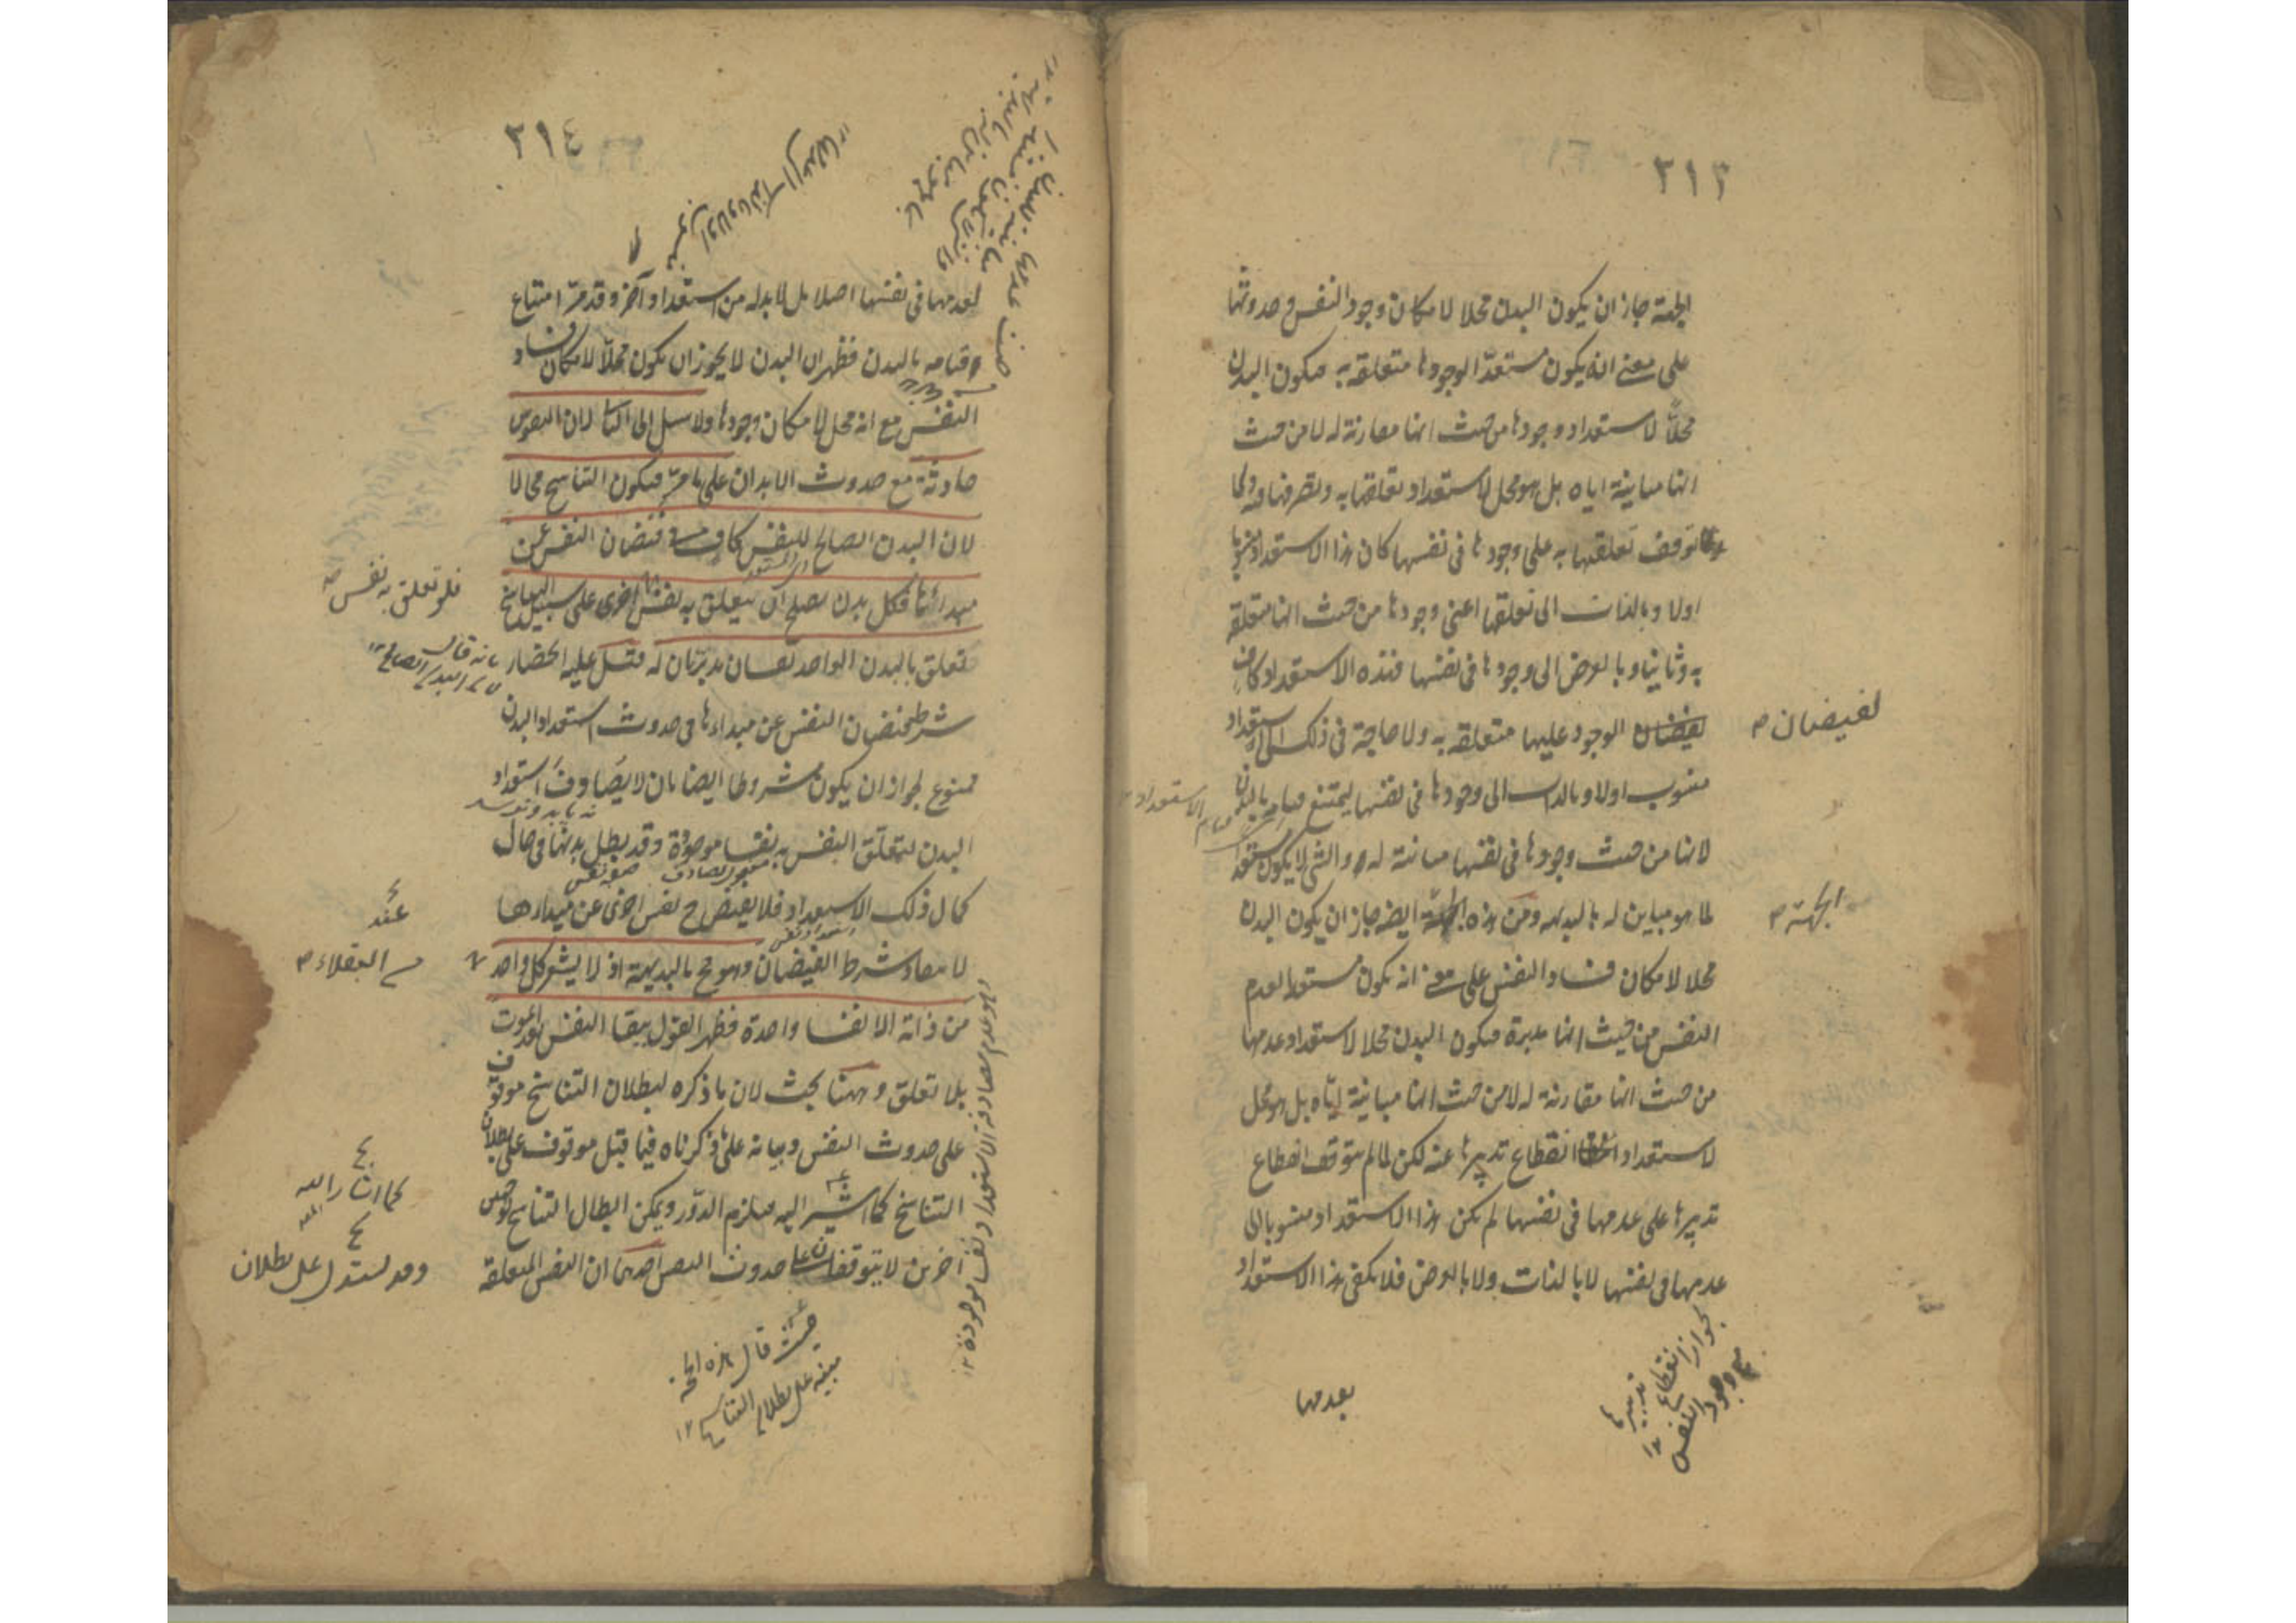 ٣١٣
الجهة جاز ان يكون البدن محلا لامكان وجود النفس وحدوثها
على معنى انه يكون مستعدا لوجودها متعلقة به فيكون البدن
محلا لاستعداد وجودها من حيث انها مقارنة له لا من حيث
انها مباينة اياه بل هو محل لاستعداد تعلقها به وتصرفها فيه ولما
توقف تعلقها به على وجودها فى نفسها كان هذا الاستعداد منسوبا
اولا وبالذات الى تعلقها اعنى وجودها من حيث انها متعلقة
به وثانيا وبالعرض الى وجودها فى نفسها فهذه الاستعداد كاف
لفيضان الوجود عليها متعلقة به ولا حاجة فى ذلك الى استعداد
لفيضان
منسوب اولا وبالذات الى وجودها فى نفسها ليمتنع قيامه بالبدن
لانها من حيث وجودها فى نفسها مباينة له والشئ لا يكون مستعدا
لما هو مباين له بالبديهه ومن هذه الجهة ايضا جاز ان يكون البدن
الجهة
محلا لامكان فساد النفس على معنى انه يكون مستعدا لعدم
النفس من حيث انها مدبرة فيكون البدن محلا لاستعداد عدمها
من حيث انها مقارنة له لا من حيث انها مباينة اياه بل هو محل
لاستعداد انقطاع تدبيرها عنه لكن لما لم يتوقف انقطاع
تدبيرها على عدمها فى نفسها لم يكن هذا الاستعداد منسوبا الى
عدمها فى نفسها لا بالذات ولا بالعرض فلا يكفى هذا الاستعداد
لجواز انقطاع تدبيرها
مع وجود النفس ١٢
بعدمها
٣١٤
لعدمها فى نفسها اصلا بل لا بد له من استعداد آخر وقد مر امتناع
قيامه بالبدن فظهر ان البدن لا يجوز ان يكون محلا لامكان فساد
النفس مع انه محل لامكان وجودها ولا سبيل الى الثانى لان النفوس
حادثة مع حدوث الابدان على ما مر فيكون التناسخ محالا
لان البدن الصالح للنفس كاف فى فيضان النفس عن
مبدائها فكل بدن يصلح ان يتعلق به نفس اخرى على سبيل التناسخ
فلو تعلق به نفس
تعلق بالبدن الواحد نفسان مدبرتان له قيل عليه انحصار
شرط فيضان النفس عن مبداءها فى حدوث استعداد البدن
ممنوع لجواز ان يكون مشروطا ايضا بان لا يصادف استعداد
البدن لتعلق النفس به نفسا موجودة وقد بطل بدنها فى حال
كمال ذلك الاستعداد فلا يفيض ح نفس اخرى عن مبدائها
عند
لا نتفاء شرط الفيضان وهو مح بالبديهة اذ لا يشعر كل واحد
العقلاء
من ذاته الا نفسا واحدة فظهر القول ببقا النفس بعد الموت
بلا تعلق وههنا بحث لان ما ذكره لبطلان التناسخ موقوف
على حدوث النفس وبيانه على ما ذكرناه فيما قبل موقوف على بطلان
التناسخ كما اشير اليه فيلزم الدور ويمكن ابطال التناسخ بوجهين
كما اشار اليه
اخرين لا يتوقفان على حدوث النفس احدهما ان النفس المتعلقة
وقد يستدل على بطلان
حيث قال هذه الحجة
مبنية على بطلان التناسخ ١٢